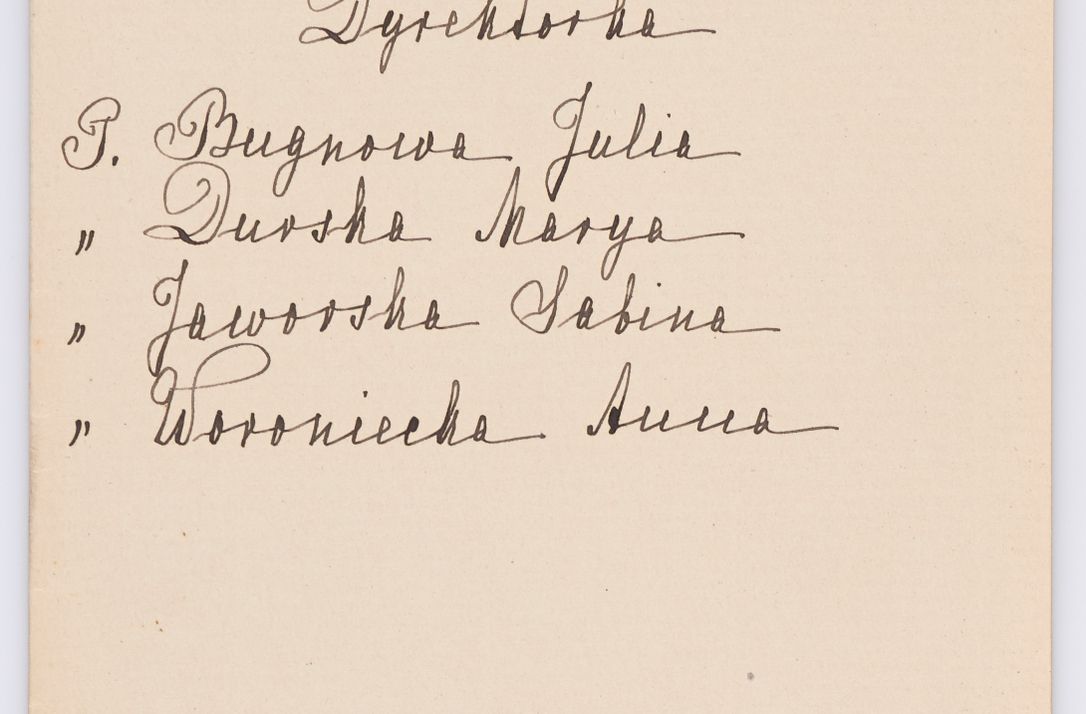 Dyrektorka
P. Bugnowa Julia
„ Durska Marya
„ Jaworska Sabina
„ Woroniecka Anna